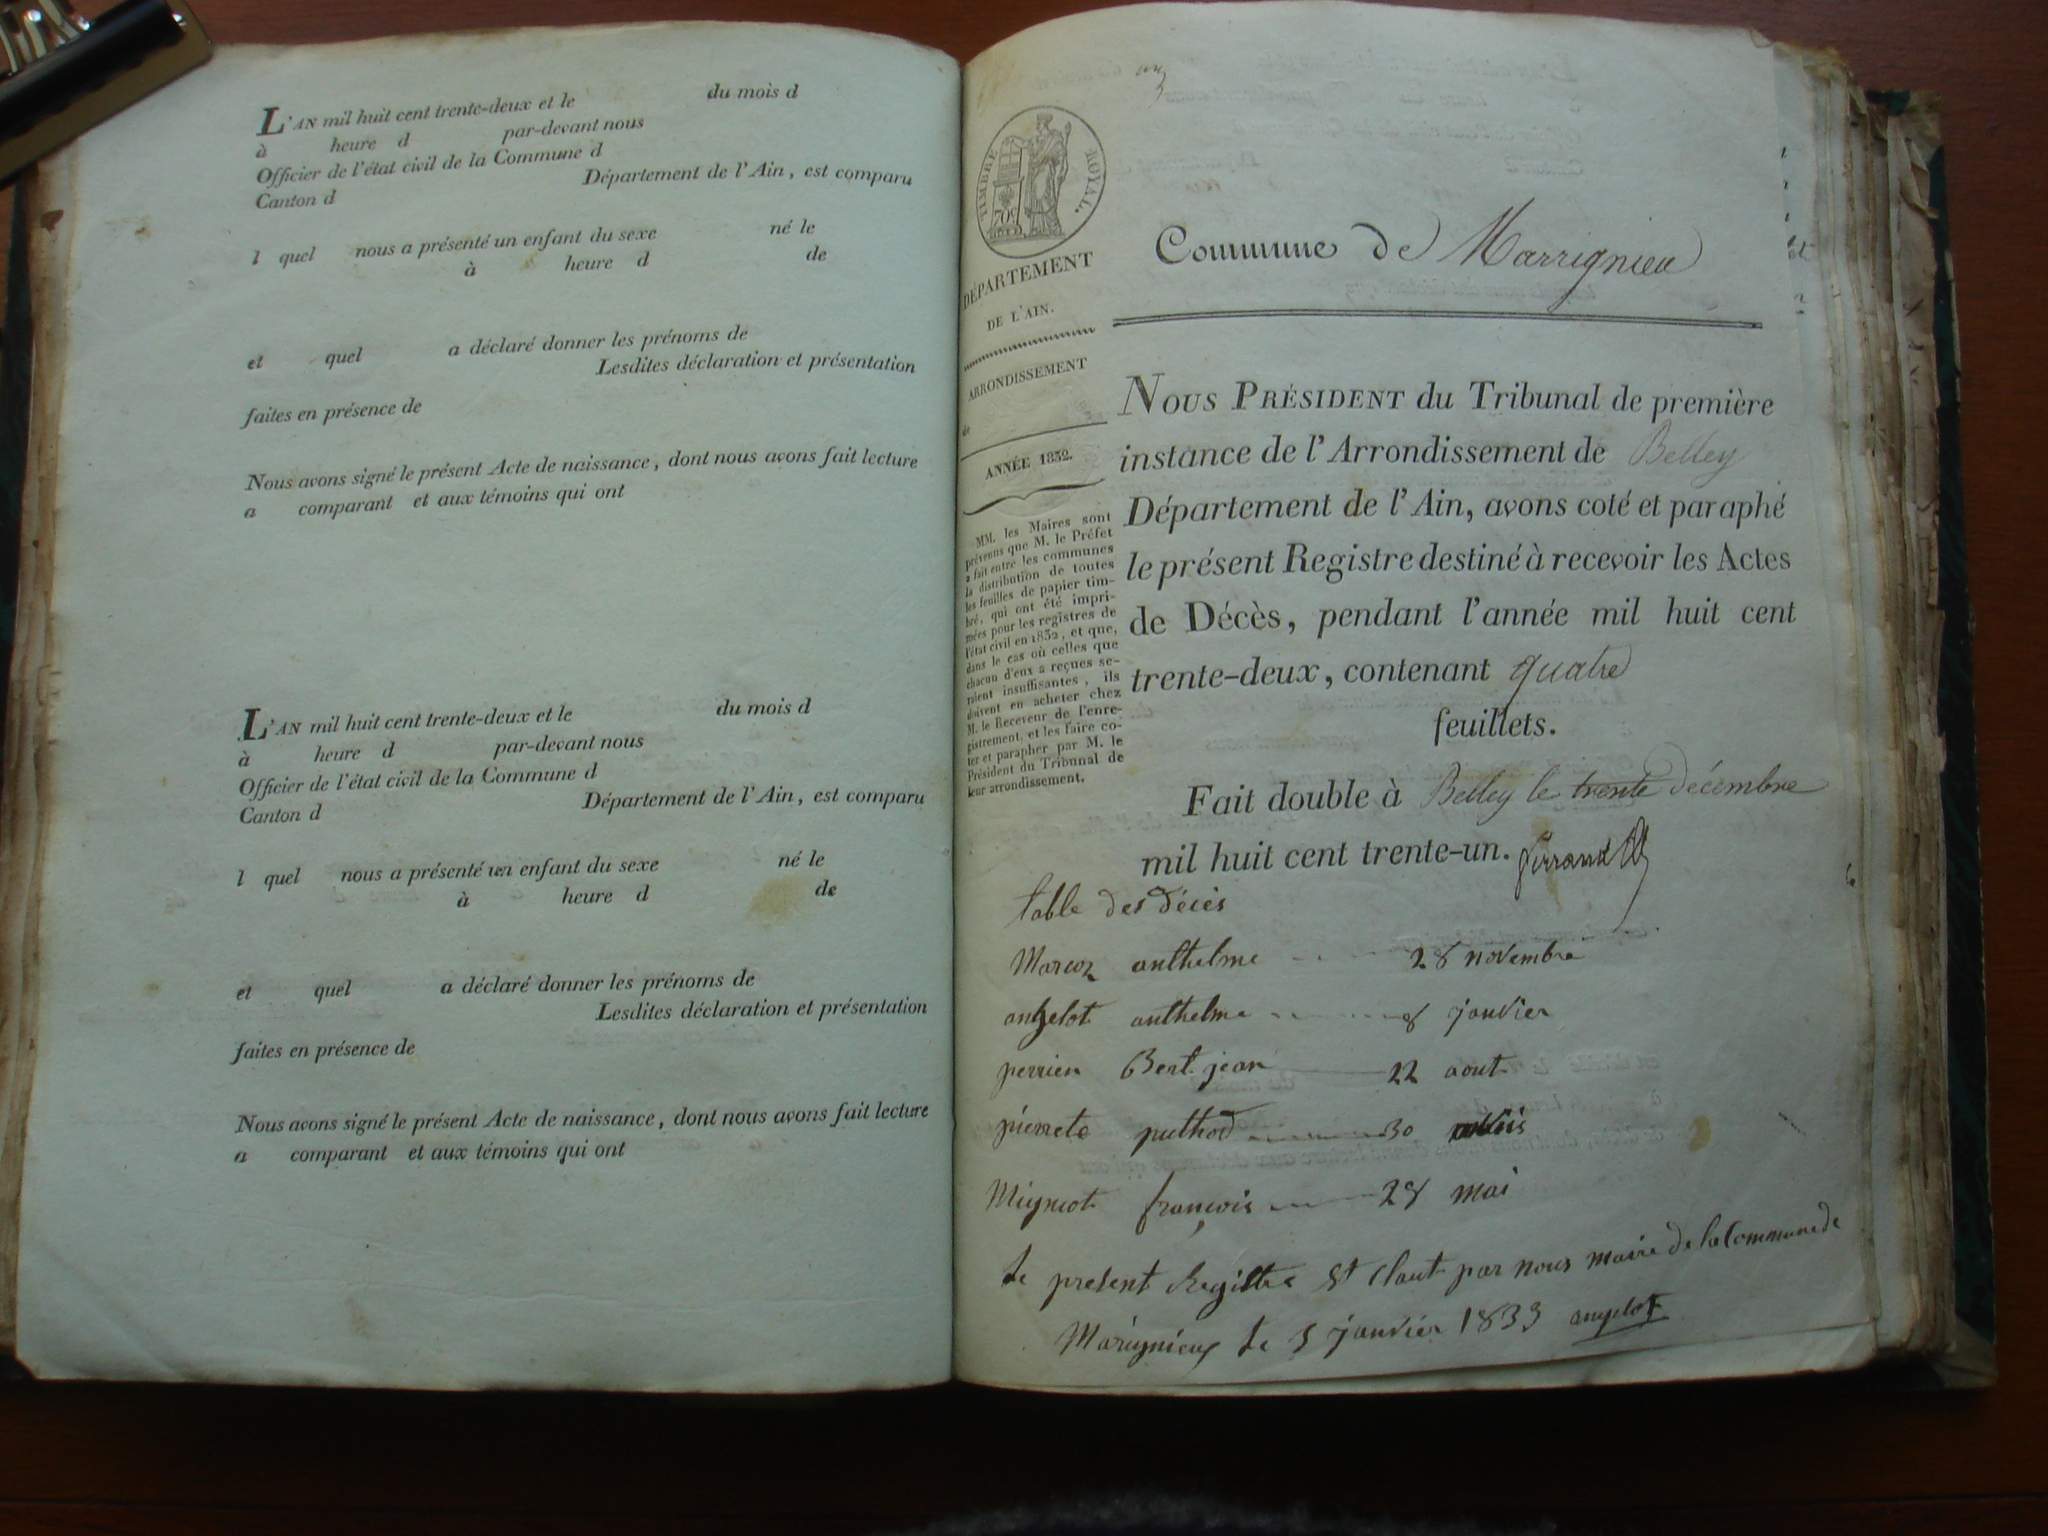 L'AN mil huit cent trente-deux et le du mois d
à heure d par-devant nous
Officier de l'état civil de la Commune d
Canton d Département de l'Ain, est comparu
l quel nous a présenté un enfant du sexe né le
à heure d de
et quel a déclaré donner les prénoms de
Lesdites déclaration et présentation
faites en présence de
Nous avons signé le présent Acte de naissance, dont nous avons fait lecture
a comparant et aux témoins qui ont
L'AN mil huit cent trente-deux et le du mois d
à heure d par-devant nous
Officier de l'état civil de la Commune d
Canton d Département de l'Ain, est comparu
l quel nous a présenté un enfant du sexe né le
à heure d de
et quel a déclaré donner les prénoms de
Lesdites déclaration et présentation
faites en présence de
Nous avons signé le présent Acte de naissance, dont nous avons fait lecture
a comparant et aux témoins qui ont
TIMBRE ROYAL.
70c
DÉPARTEMENT
DE L'AIN.
ARRONDISSEMENT
de
ANNÉE 1832.
MM. les Maires sont
prévenus que M. le Préfet
a fait entre les communes
la distribution de toutes
les feuilles de papier tim-
bré, qui ont été impri-
mées pour les registres de
l'état civil en 1832, et que,
dans le cas où celles que
chacun d'eux a reçues se-
roient insuffisantes, ils
doivent en acheter chez
M. le Receveur de l'enre-
gistrement, et les faire co-
ter et parapher par M. le
Président du Tribunal de
leur arrondissement.
Commune de Marrignieu
NOUS PRÉSIDENT du Tribunal de première
instance de l'Arrondissement de Belley
Département de l'Ain, avons coté et paraphé
le présent Registre destiné à recevoir les Actes
de Décès, pendant l'année mil huit cent
trente-deux, contenant quatre
feuillets.
Fait double à Belley le trente décembre
mil huit cent trente-un.
table des décès
Marcoz anthelme 28 novembre
angelot anthelme 8 janvier
perrien Bert jean 22 aout
pierrete puthod 30
Mignot françois 28 mai
Le present Registre st Clout par nous maire de la Commune de
Marignieux le 5 janvier 1833 angelot